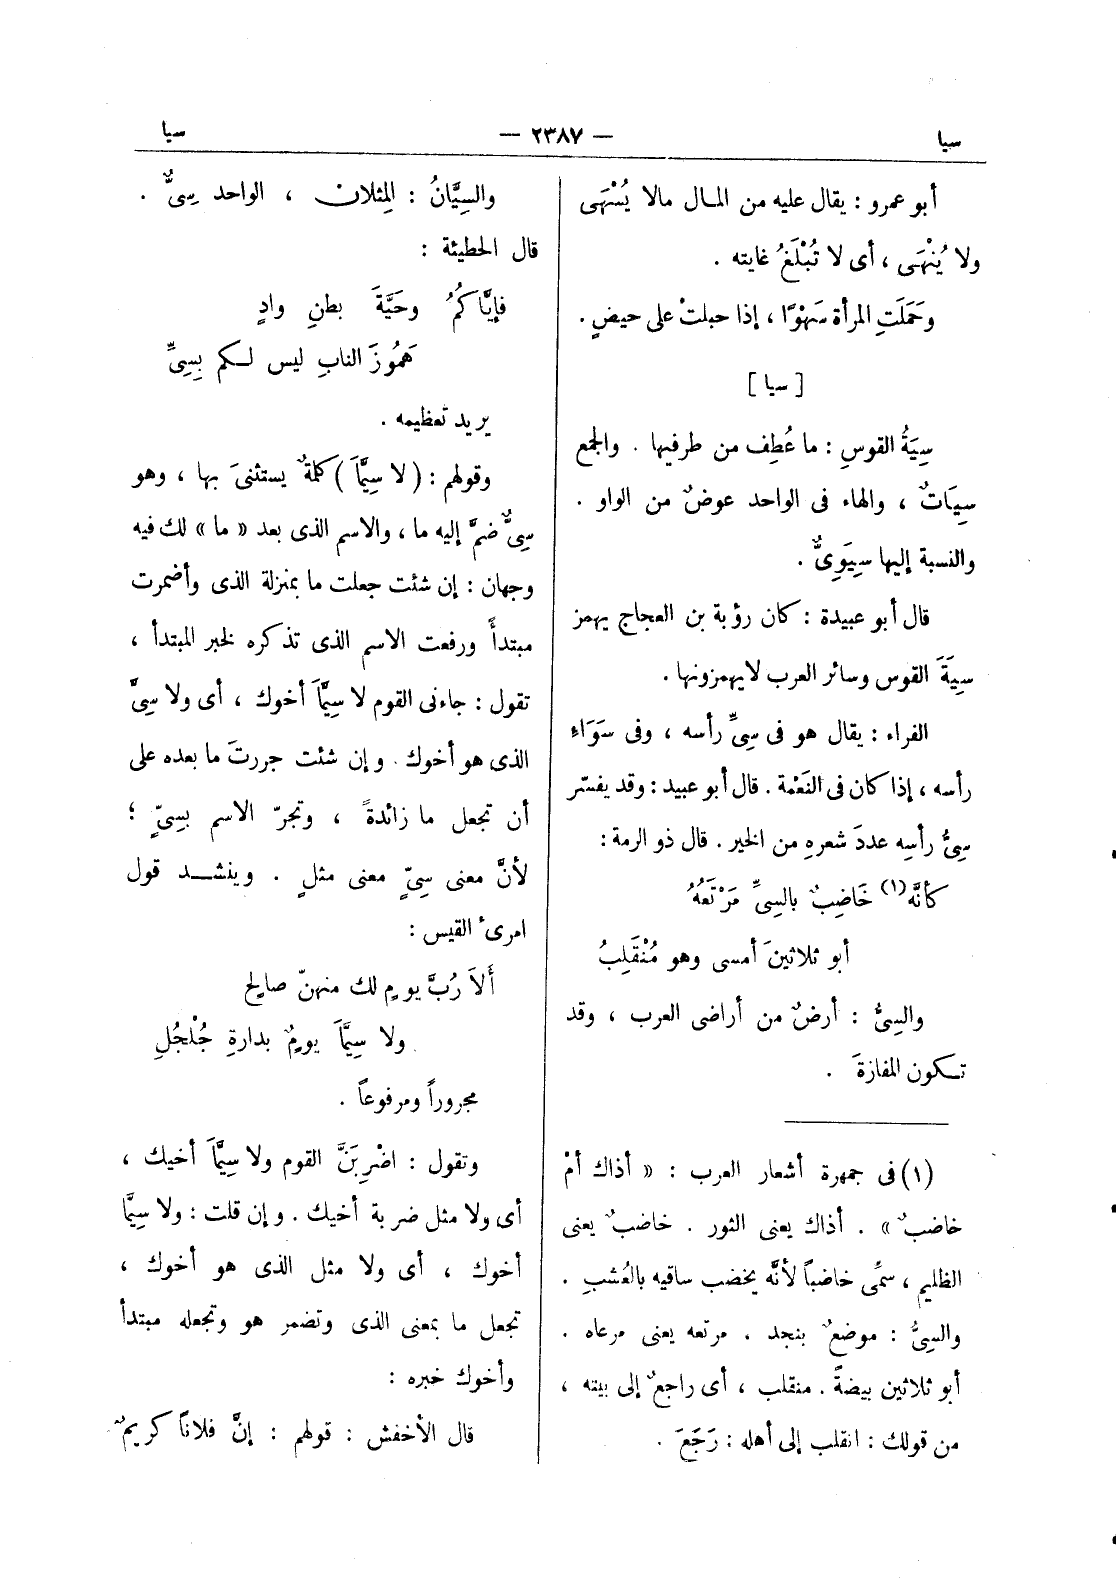 سيا
— ٢٣٨٧ —
سيا
أبو عمرو : يقال عليه من المال مالا يُنْتَهَى
ولا يُنْهَى ، أى لا تُبْلَغُ غايته .
وحَمَلَتِ المرأة سَهْوًا ، إذا حبلتْ على حيضٍ .
[ سيا ]
سِيَةُ القوسِ : ما عُطِف من طرفيها . والجمع
سِيَاتٌ ، والهاء فى الواحد عوضٌ من الواو .
والنسبة إليها سِيَوِىٌّ .
قال أبو عبيدة : كان رؤبة بن العجاج يهمز
سِيَةَ القوس وسائر العرب لايهمزونها .
الفراء : يقال هو فى سِىِّ رأسه ، وفى سَوَاءِ
رأسه ، إذا كان فى النَعْمة . قال أبو عبيد : وقد يفسّر
سِىُّ رأسِه عددَ شعرهِ من الخير . قال ذو الرمة :
كأنَّه (١) خَاضِبٌ بالسِىِّ مَرْتَعُهُ
أبو ثلاثينَ أمسى وهو مُنْقَلِبُ
والسِىُّ : أرضٌ من أراضى العرب ، وقد
تكون المفازةَ .
(١) فى جمهرة أشعار العرب : « أذاك أمْ
خاضبٌ » . أذاك يعنى الثور . خاضبٌ يعنى
الظليم ، سمِّى خاضباً لأنَّه يخضب ساقيه بالعُشبِ .
والسِىُّ : موضعٌ بنجد . مرتعه يعنى مرعاه .
أبو ثلاثين بيضةً . منقلب ، أى راجعٌ إلى بيته ،
من قولك : انقلب إلى أهله : رَجَعَ .
والسِيَّانُ : المِثلان ، الواحد سِىٌّ .
قال الحطيئة :
فإيَّاكُمُ وحَيَّةَ بطنِ وادٍ
هَمُوزَ النابِ ليس لكم بِسِىِّ
يريد تعظيمه .
وقولهم : ( لا سِيَّمَا ) كلمةٌ يستثنىَ بها ، وهو
سِىٌّ ضمَّ إليه ما ، والاسم الذى بعد « ما » لك فيه
وجهان : إن شئت جعلت ما بمنزلة الذى وأضمرت
مبتدأً ورفعت الاسم الذى تذكره لخبر المبتدأ ،
تقول : جاءنى القوم لا سِيَّمَا أخوك ، أى ولا سِىَّ
الذى هو أخوك . وإن شئت جررتَ ما بعده على
أن تجعل ما زائدةً ، وتجرّ الاسم بسِىٍّ ؛
لأنَّ معنى سِىٍّ معنى مثلٍ . وينشد قول
امرئ القيس :
أَلاَ رُبَّ يومٍ لك منهنّ صالحِ
ولا سِيَّمَا يومٌ بدارةِ جُلْجُلِ
مجروراً ومرفوعاً .
وتقول : اضْرِبَنَّ القوم ولا سِيَّمَا أخيك ،
أى ولا مثل ضربة أخيك . وإن قلت : ولا سِيَّمَا
أخوك ، أى ولا مثل الذى هو أخوك ،
تجعل ما بمعنى الذى وتضمر هو وتجعله مبتدأ
وأخوك خبره :
قال الأخفش : قولهم : إنَّ فلاناً كريمٌ